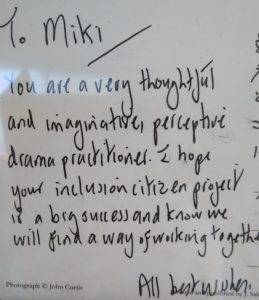 To Miki
You are a very thoughtful
and imaginative, perceptive
drama practitioner. I hope
your inclusion citizen project
is a big success and know we
will find a way of working together
All best wishes.
Photograph © John Curtis